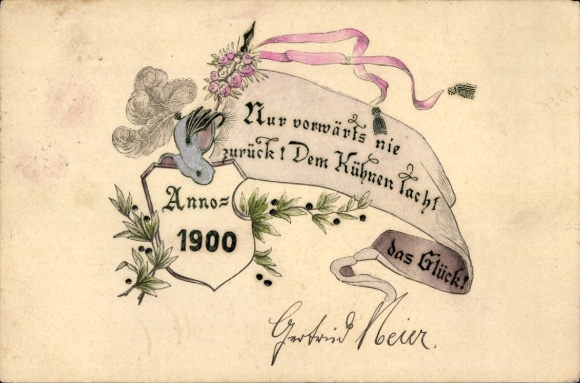 Nur vorwärts nie
zurück! Dem Kühnen lacht
das Glück!
Anno=
1900
Gertrud Meier.